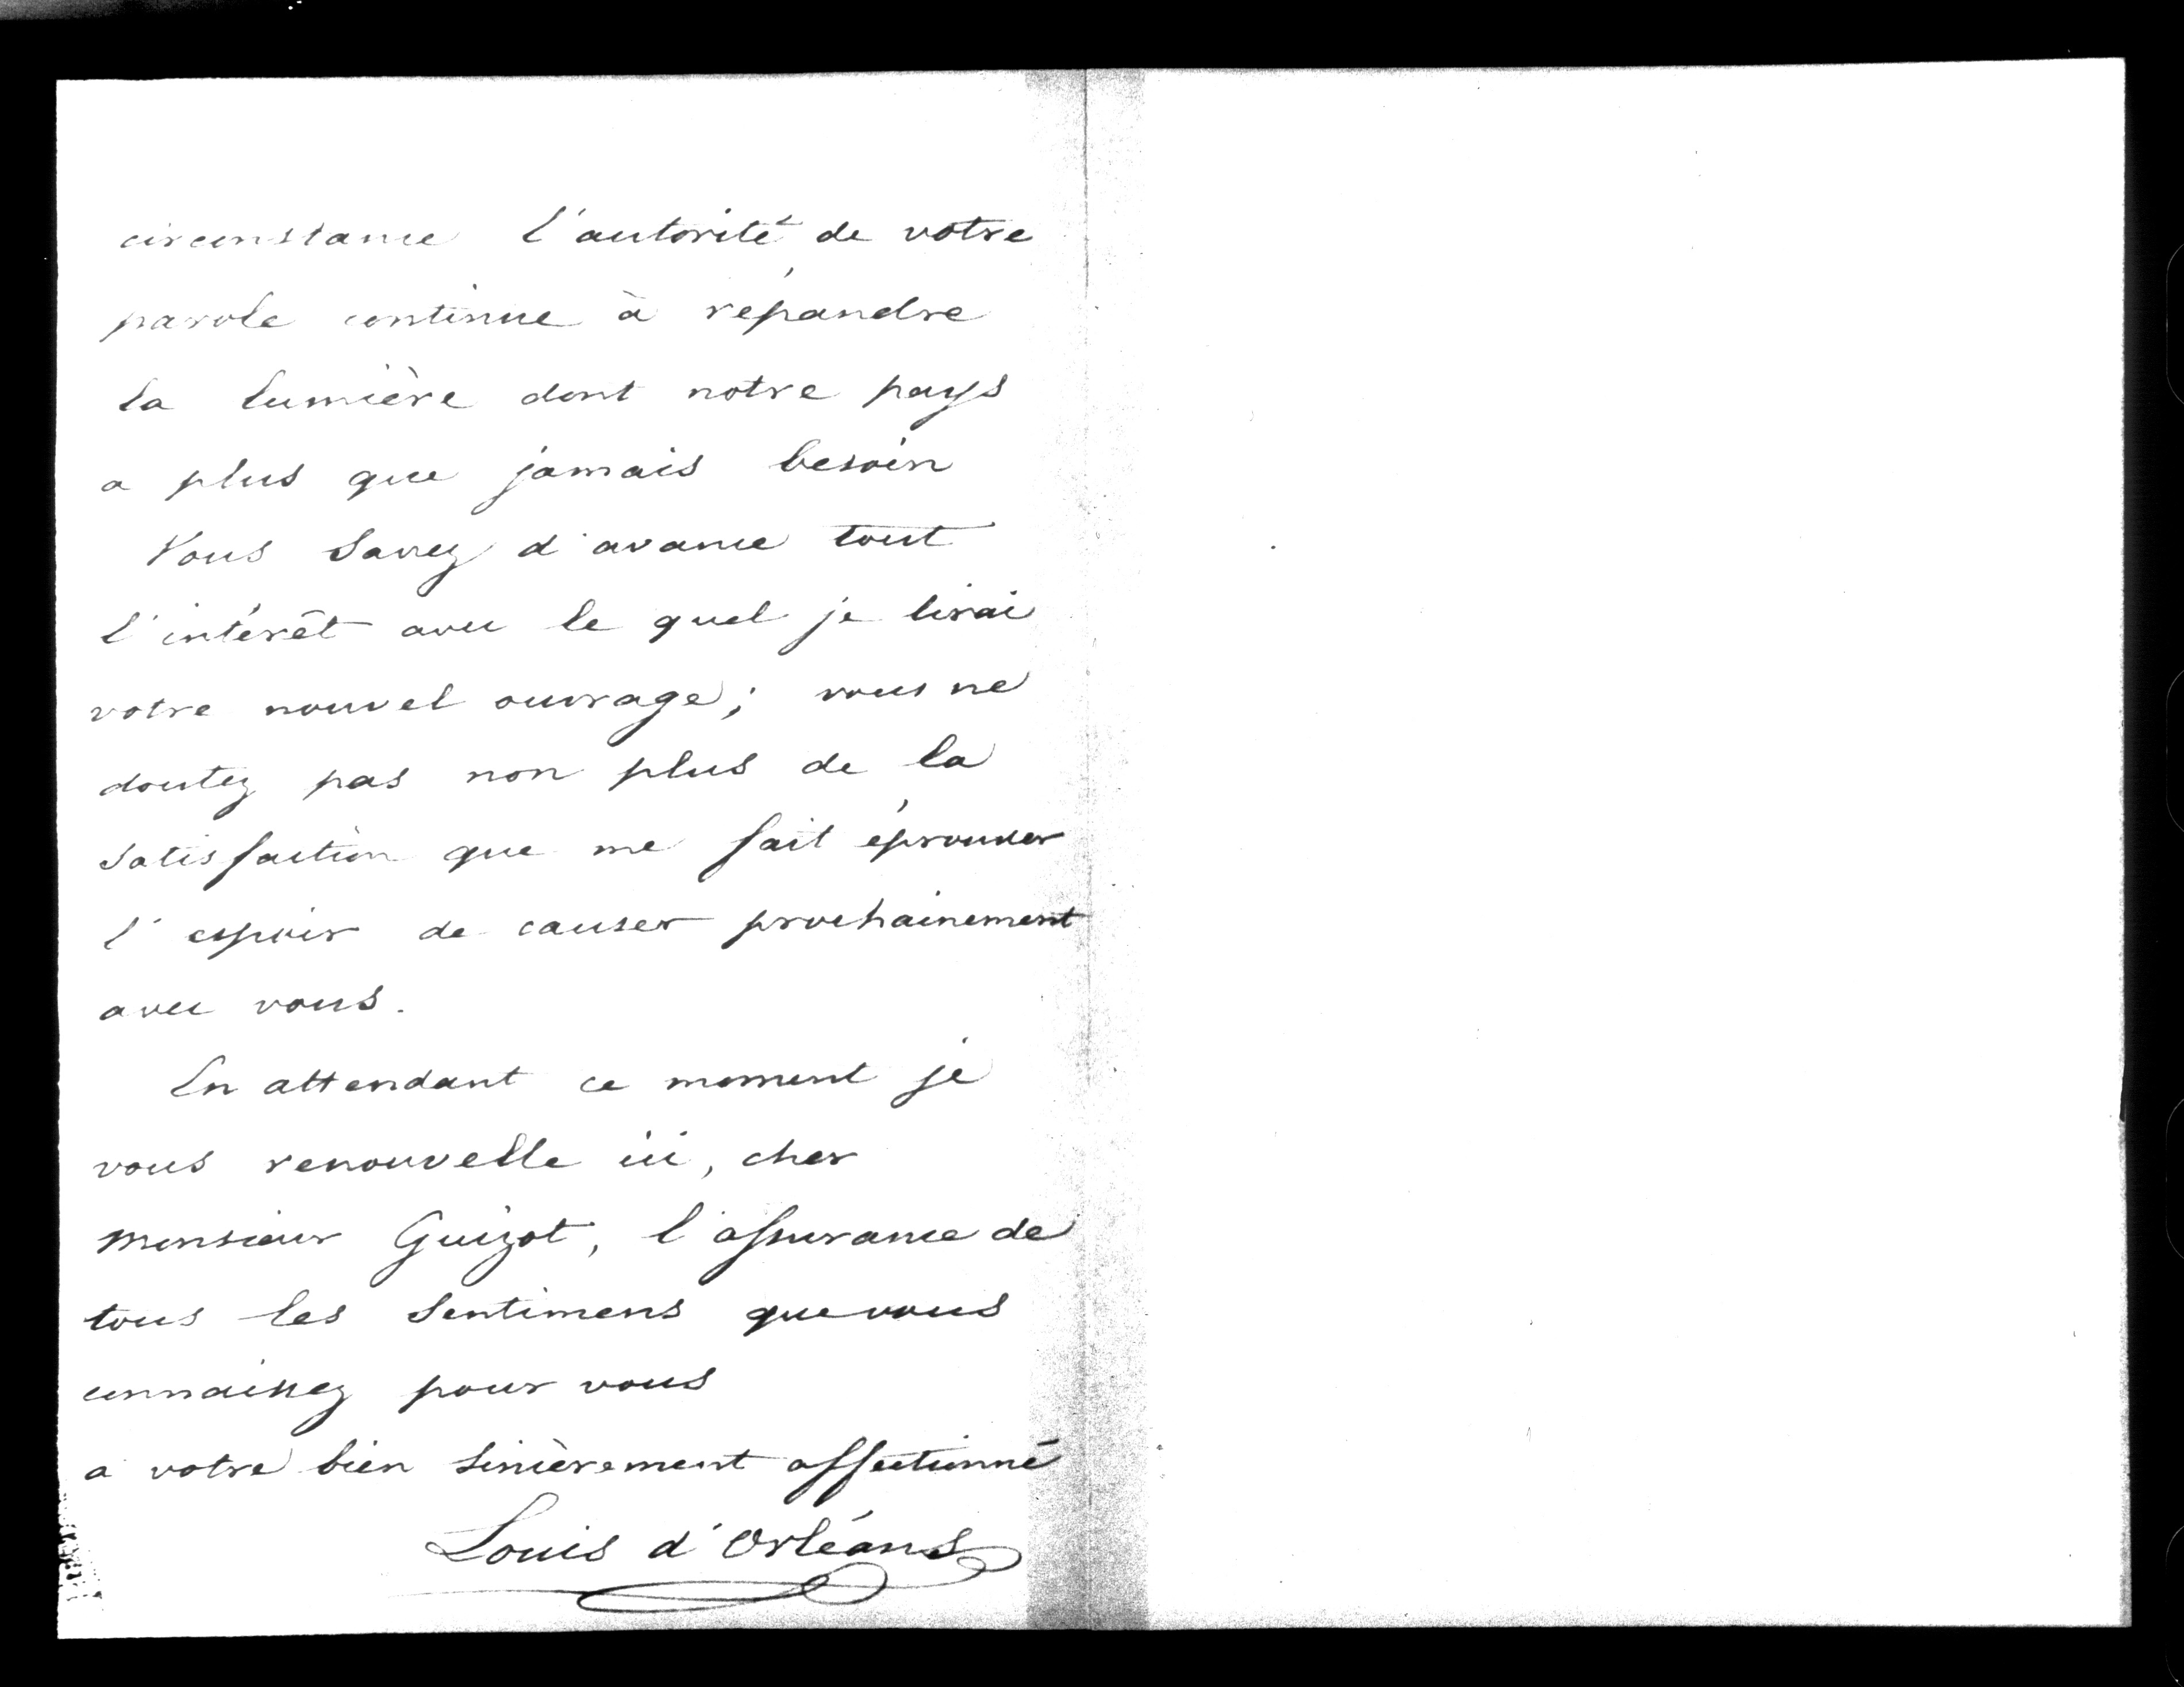 circonstance l'autorité de votre
parole continue à répandre
la lumière dont notre pays
a plus que jamais besoin
Vous savez d'avance tout
l'intérêt avec le quel je lirai
votre nouvel ouvrage ; vous ne
doutez pas non plus de la
satisfaction que me fait éprouver
l'espoir de causer prochainement
avec vous.
En attendant ce moment je
vous renouvelle ici, cher
Monsieur Guizot, l'assurance de
tous les sentimens que vous
connaissez pour vous
a votre bien sincèrement affectionné
Louis d'Orléans